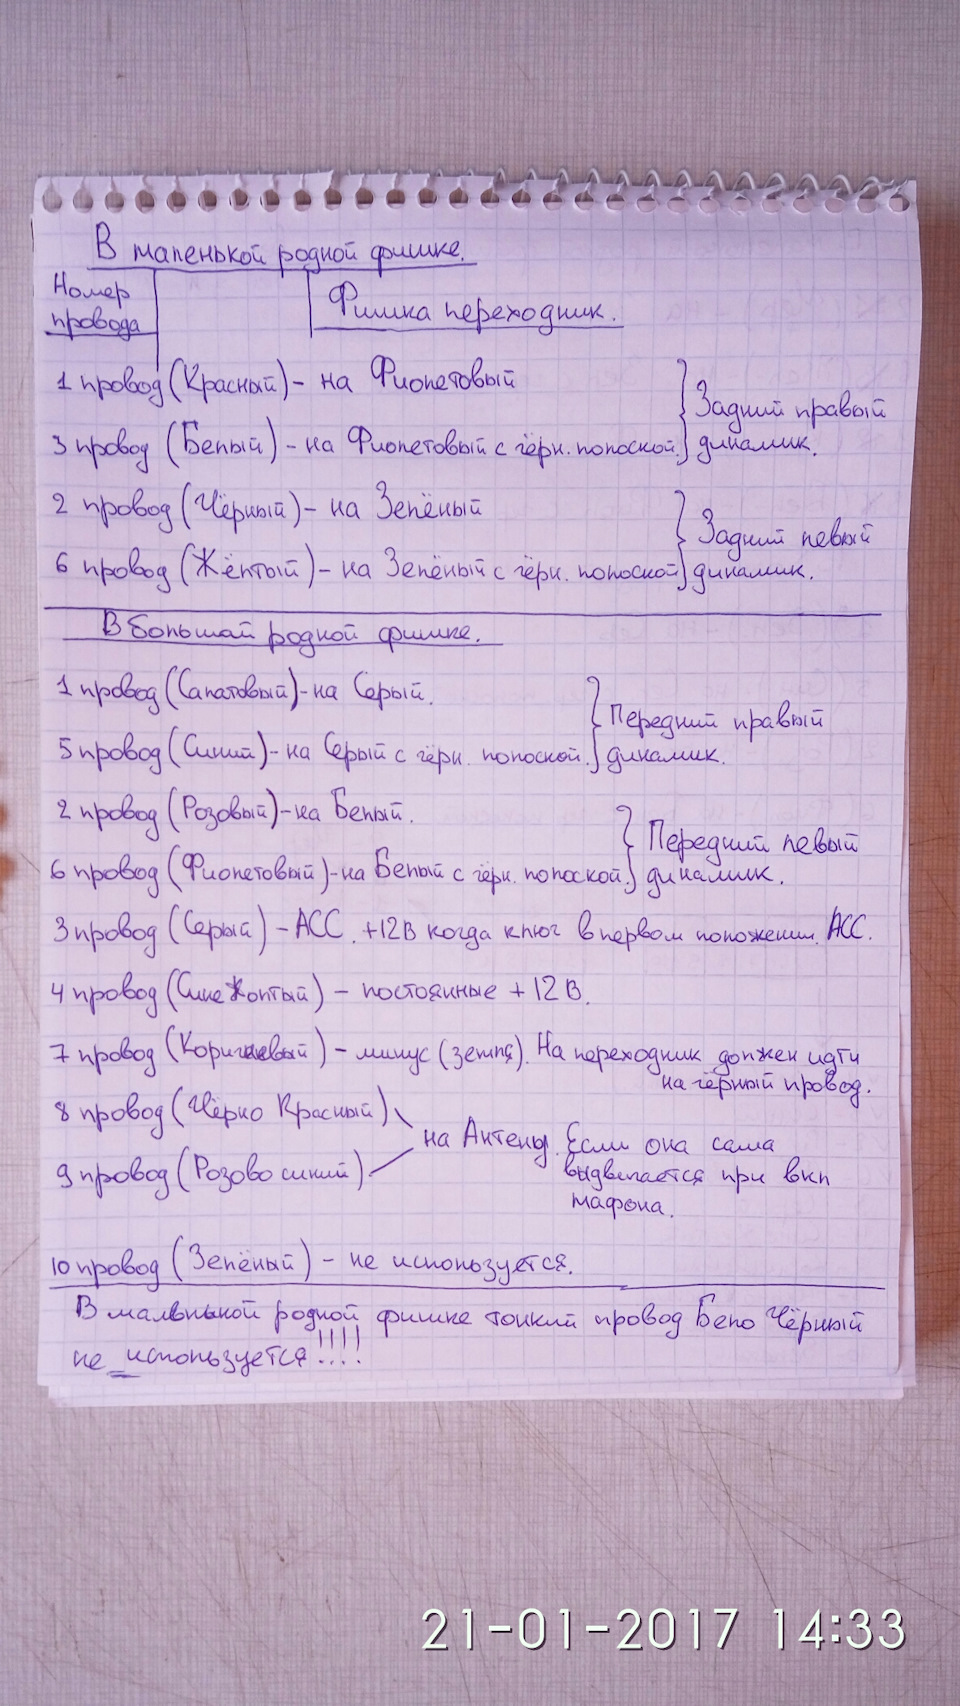 В маленькой родной фишке.
Номер провода
Фишка переходник.
1 провод (Красный) - на Фиолетовый
3 провод (Белый) - на Фиолетовый с чёрн. полоской.
Задний правый динамик.
2 провод (Чёрный) - на Зелёный
6 провод (Жёлтый) - на Зелёный с чёрн. полоской
Задний левый динамик.
В большой родной фишке.
1 провод (Салатовый) - на Серый.
5 провод (Синий) - на Серый с чёрн. полоской.
Передний правый динамик.
2 провод (Розовый) - на Белый.
6 провод (Фиолетовый) - на Белый с чёрн. полоской.
Передний левый динамик.
3 провод (Серый) - АСС. +12В когда ключ в первом положении. АСС.
4 провод (Сине Жолтый) - постоянные +12 В.
7 провод (Коричневый) - минус (земля). На переходник должен идти
на чёрный провод.
8 провод (Чёрно Красный)
9 провод (Розово синий)
на Антены. Если она сама
выдвигается при вкл
мафона.
10 провод (Зелёный) - не используется.
В мальнькой родной фишке тонкий провод Бело Чёрный
не используется!!!!
21-01-2017 14:33